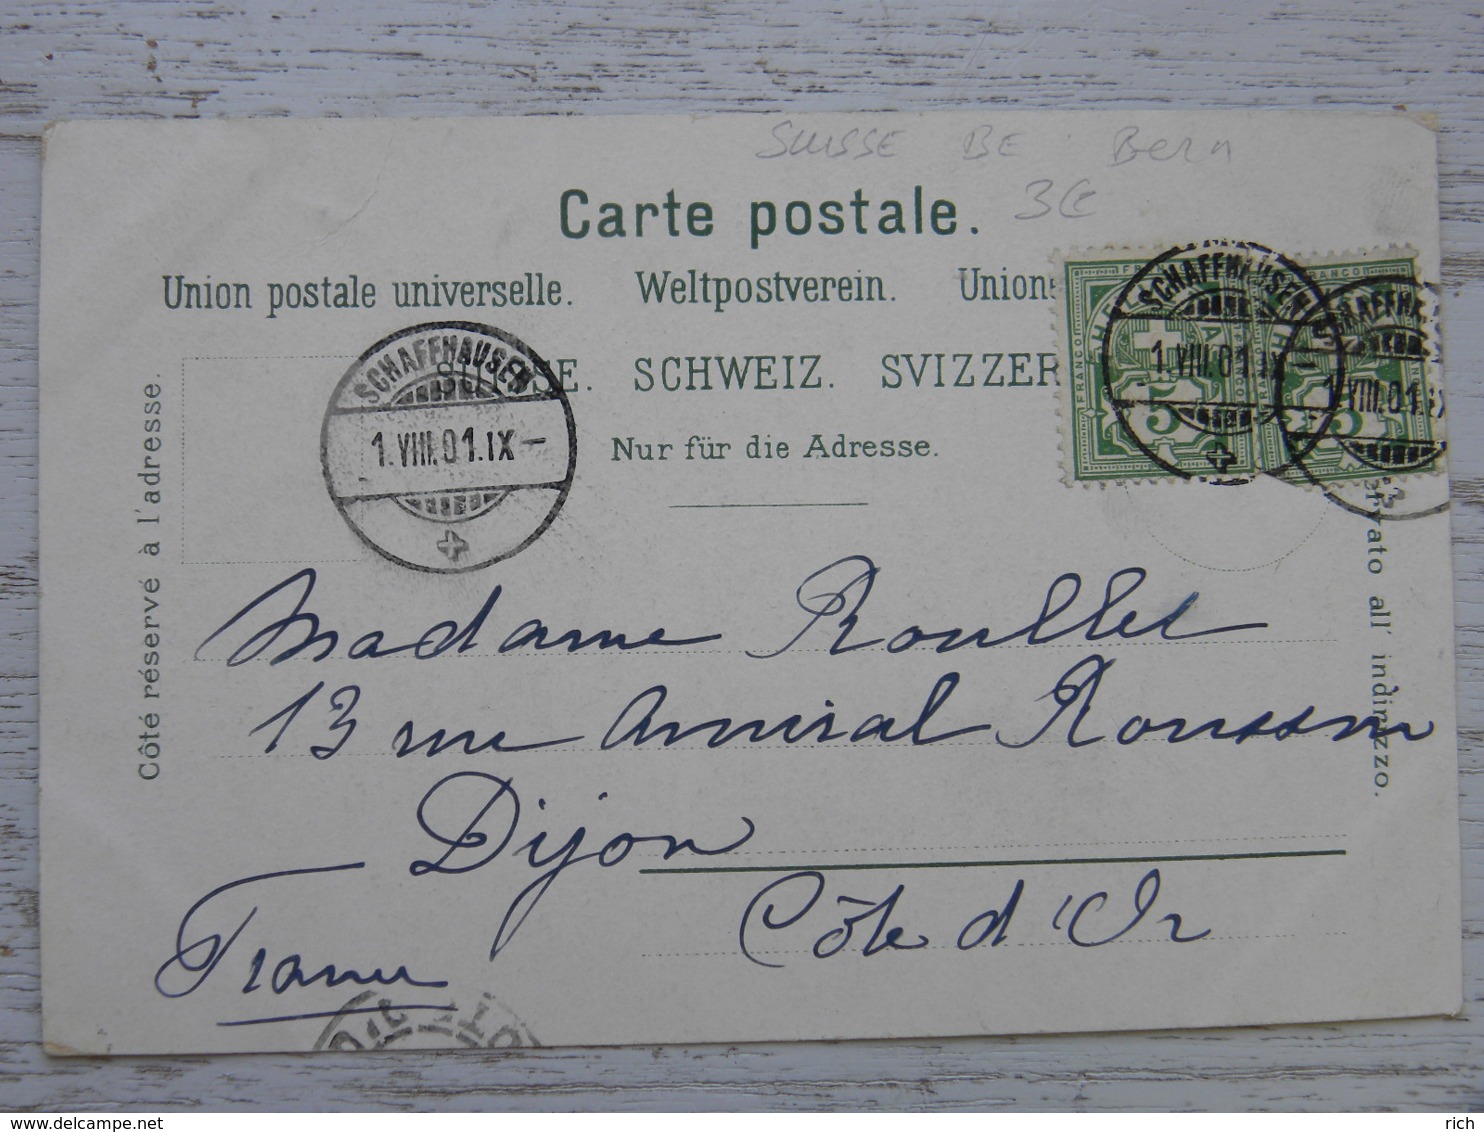 SUISSE BE Bern
3€
Carte postale.
Union postale universelle. Weltpostverein. Union
SCHWEIZ. SVIZZER
Nur für die Adresse.
Côté réservé à l'adresse.
all' indirizzo.
SCHAFFHAUSEN
1.VIII.01.IX–
SCHAFFHAUSEN
1.VIII.01.IX–
1.VIII.01.IX
FRANCO
FRANCO
5
5
Madame Roullet
13 rue Amiral Roussin
Dijon
Côte d'Or
France
delcampe.net
rich